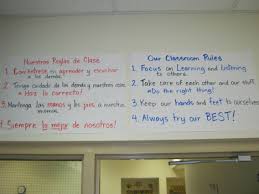 Nuestras Reglas de Clase
1. Concéntrese en aprender y escuchar
a los demás.
2. Tenga cuidado de los demás y nuestras cosas
* Haz lo correcto!
3. Mantenga las manos y los pies a nosotros
mismos.
4. Siempre lo mejor de nosotros!
Our Classroom Rules
1. Focus on Learning and Listening
to others.
2. Take care of each other and our stuff
*Do the right thing!
3. Keep our hands and feet to ourselves
4. Always try our BEST!